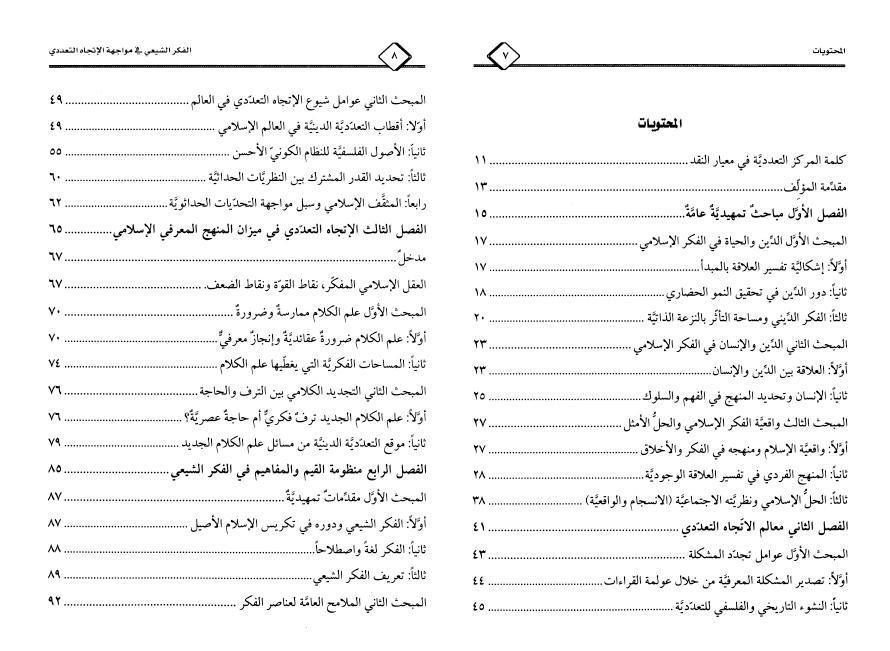 المحتويات
٧
المحتويات
كلمة المركز التعدديَّة في معيار النقد ١١
مقدّمة المؤلِّف ١٣
الفصل الأوَّل مباحثٌ تمهيديَّةٌ عامَّةٌ ١٥
المبحث الأوَّل الدِّين والحياة في الفكر الإسلامي ١٧
أوَّلاً: إشكاليَّة تفسير العلاقة بالمبدأ ١٧
ثانياً: دور الدِّين في تحقيق النمو الحضاري ١٨
ثالثاً: الفكر الدِّيني ومساحة التأثّر بالنزعة الذاتيَّة ٢٠
المبحث الثاني الدِّين والإنسان في الفكر الإسلامي ٢٣
أوَّلاً: العلاقة بين الدِّين والإنسان ٢٣
ثانياً: الإنسان وتحديد المنهج في الفهم والسلوك ٢٥
المبحث الثالث واقعيَّة الفكر الإسلامي والحلُّ الأمثل ٢٧
أوَّلاً: واقعيَّة الإسلام ومنهجه في الفكر والأخلاق ٢٧
ثانياً: المنهج الفردي في تفسير العلاقة الوجوديَّة ٢٨
ثالثاً: الحلُّ الإسلامي ونظريَّته الاجتماعيَّة (الانسجام والواقعيَّة) ٣٨
الفصل الثاني معالم الاتّجاه التعدّدي ٤١
المبحث الأوَّل عوامل تجدّد المشكلة ٤٣
أوَّلاً: تصدير المشكلة المعرفيَّة من خلال عولمة القراءات ٤٤
ثانياً: النشوء التاريخي والفلسفي للتعدّديَّة ٤٥
٨
الفكر الشيعي في مواجهة الإتجاه التعددي
المبحث الثاني عوامل شيوع الإتجاه التعدّدي في العالم ٤٩
أوّلا: أقطاب التعدّديَّة الدينيَّة في العالم الإسلامي ٤٩
ثانياً: الأصول الفلسفيَّة للنظام الكونيّ الأحسن ٥٥
ثالثاً: تحديد القدر المشترك بين النظريَّات الحداثيَّة ٦٠
رابعاً: المثقَّف الإسلامي وسبل مواجهة التحدّيات الحداثويَّة ٦٢
الفصل الثالث الإتجاه التعدّدي في ميزان المنهج المعرفي الإسلامي ٦٥
مدخلٌ ٦٧
العقل الإسلامي المفكّر، نقاط القوّة ونقاط الضعف. ٦٧
المبحث الأوَّل علم الكلام ممارسةٌ وضرورةٌ ٧٠
أوَّلاً: علم الكلام ضرورةٌ عقائديَّةٌ وإنجازٌ معرفيٌّ ٧٠
ثانياً: المساحات الفكريَّة التي يغطّيها علم الكلام ٧٤
المبحث الثاني التجديد الكلامي بين الترف والحاجة ٧٦
أوَّلاً: علم الكلام الجديد ترفٌ فكريٌّ أم حاجةٌ عصريَّةٌ؟ ٧٦
ثانياً: موقع التعدّديَّة الدينيَّة من مسائل علم الكلام الجديد ٧٩
الفصل الرابع منظومة القيم والمفاهيم في الفكر الشيعي ٨٥
المبحث الأوَّل مقدّمات تمهيديَّةٌ ٨٧
أوَّلاً: الفكر الشيعي ودوره في تكريس الإسلام الأصيل ٨٧
ثانياً: الفكر لغةً واصطلاحاً ٨٨
ثالثاً: تعريف الفكر الشيعي ٨٩
المبحث الثاني الملامح العامَّة لعناصر الفكر ٩٢